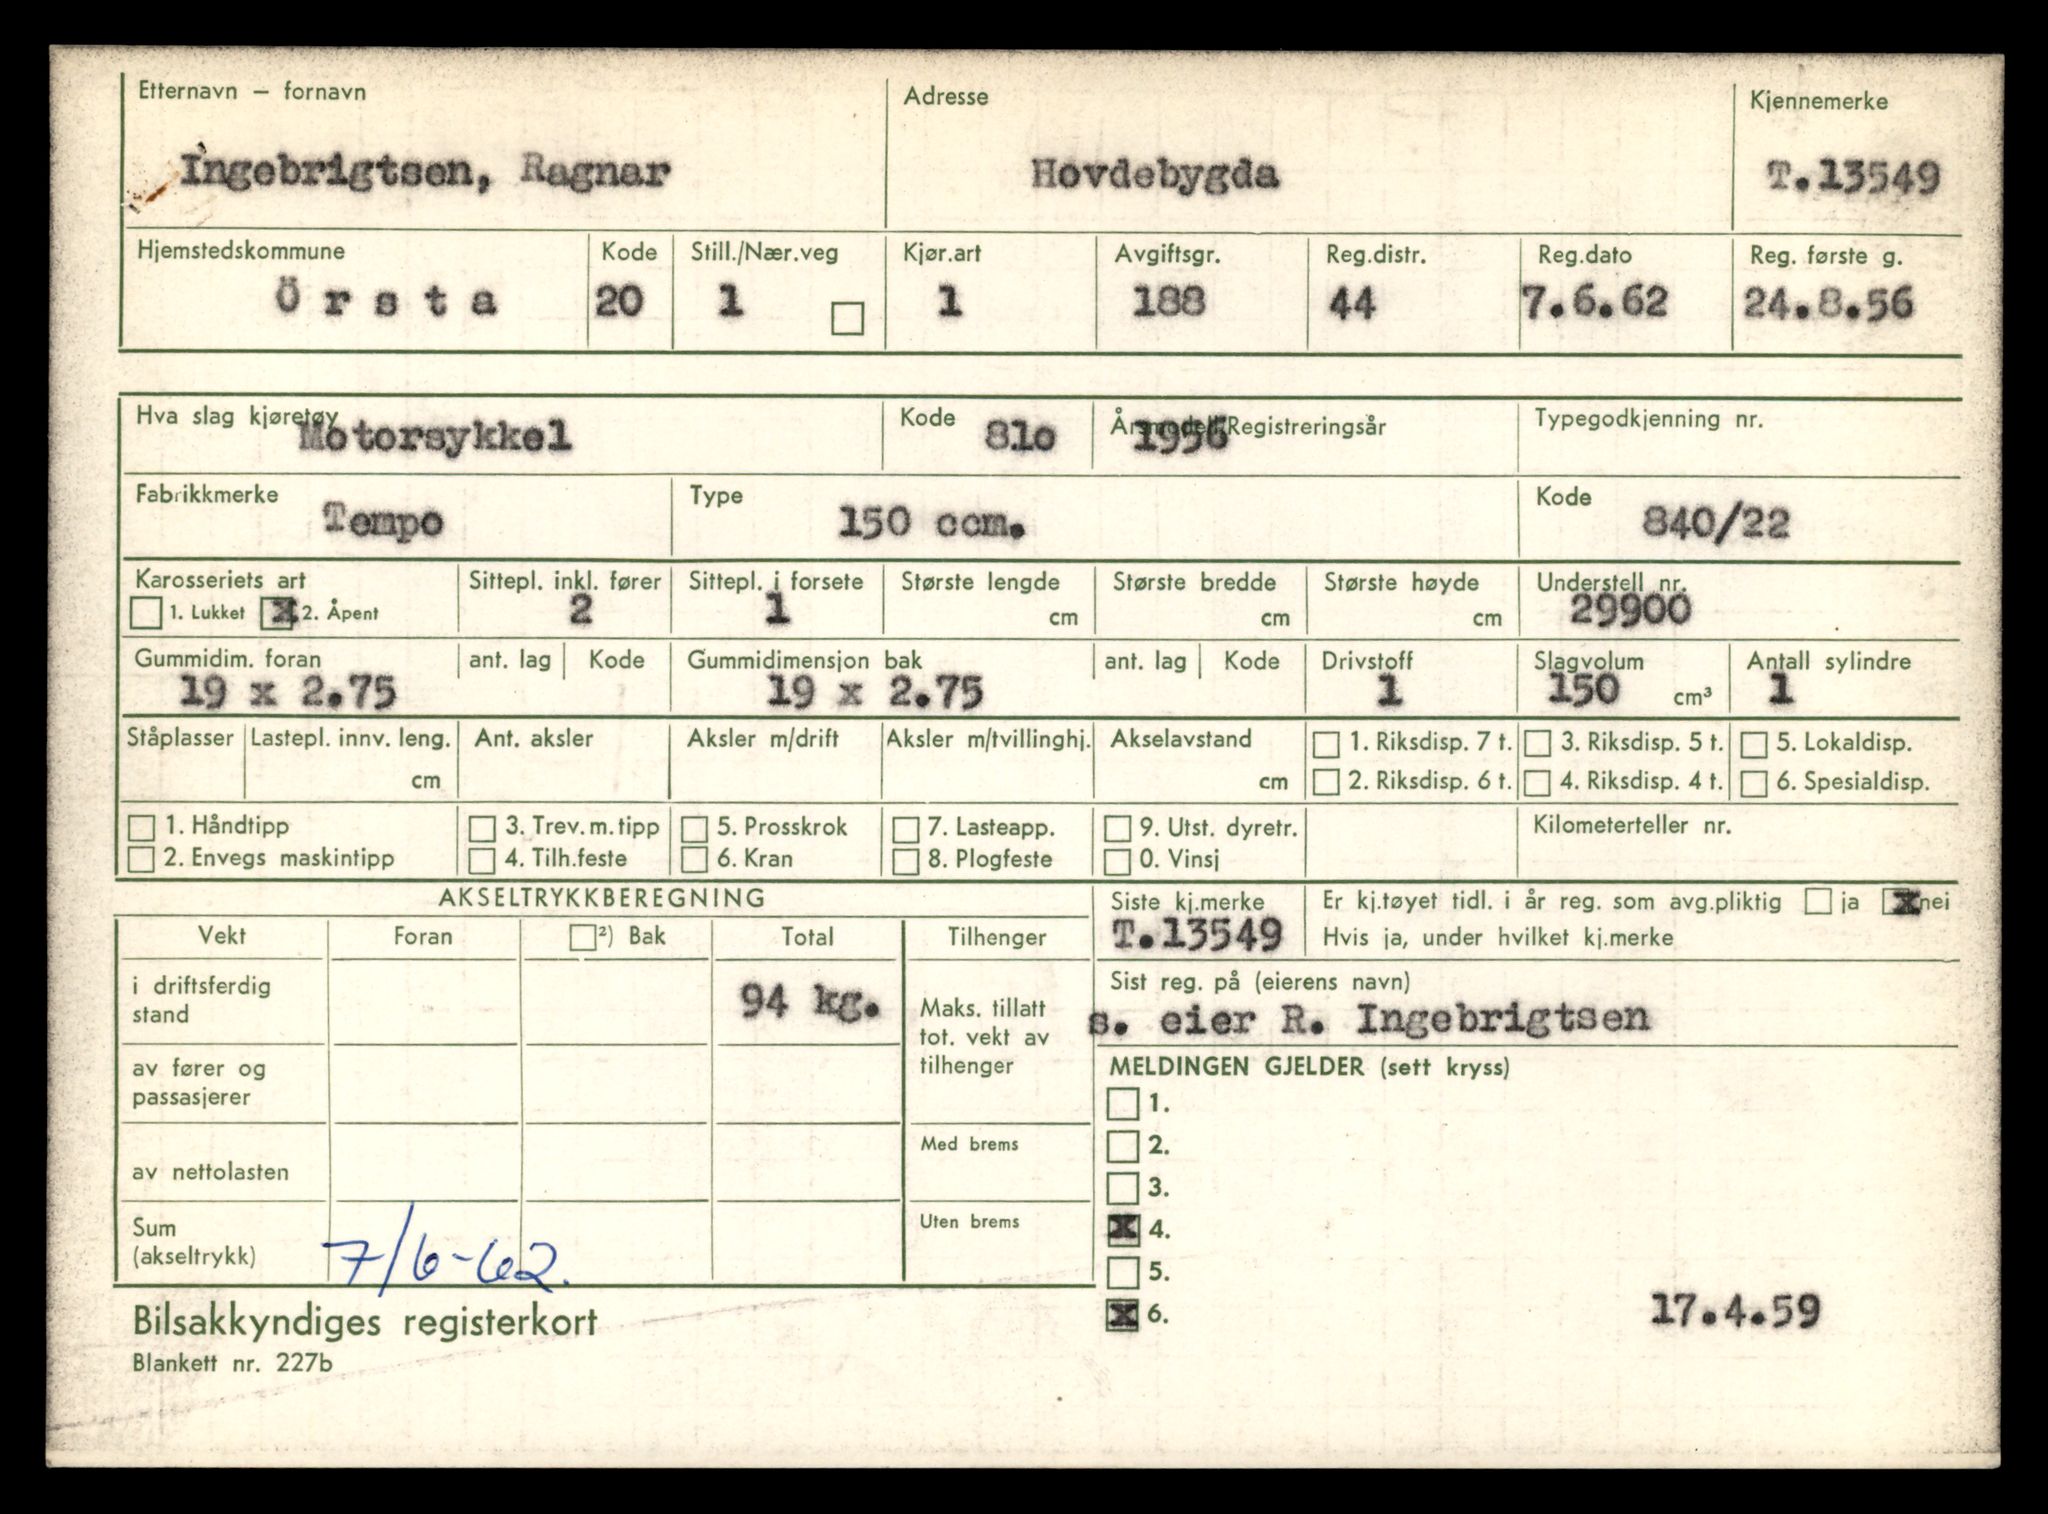 Etternavn – fornavn Adresse Kjennemerke
Ingebrigtsen, Ragnar Hovdebygda T.13549
Hjemstedskommune Kode Still./Nær.veg Kjør.art Avgiftsgr. Reg.distr. Reg.dato Reg. første g.
Ö r s t a 20 1 1 188 44 7.6.62 24.8.56
Hva slag kjøretøy Kode Årsmodell/Registreringsår Typegodkjenning nr.
Motorsykkel 81o 1956
Fabrikkmerke Type Kode
Tempo 150 ccm. 840/22
Karosseriets art Sittepl. inkl. fører Sittepl. i forsete Største lengde Største bredde Største høyde Understell nr.
1. Lukket x 2. Åpent 2 1 cm cm cm 29900
Gummidim. foran ant. lag Kode Gummidimensjon bak ant. lag Kode Drivstoff Slagvolum Antall sylindre
19 x 2.75 19 x 2.75 1 150 cm³ 1
Ståplasser Lastepl. innv. leng. Ant. aksler Aksler m/drift Aksler m/tvillinghj. Akselavstand 1. Riksdisp. 7 t. 3. Riksdisp. 5 t. 5. Lokaldisp.
cm cm 2. Riksdisp. 6 t. 4. Riksdisp. 4 t. 6. Spesialdisp.
1. Håndtipp 3. Trev.m.tipp 5. Prosskrok 7. Lasteapp. 9. Utst. dyretr. Kilometerteller nr.
2. Envegs maskintipp 4. Tilh.feste 6. Kran 8. Plogfeste 0. Vinsj
AKSELTRYKKBEREGNING
Siste kj.merke Er kj.tøyet tidl. i år reg. som avg.pliktig ja x nei
T.13549 Hvis ja, under hvilket kj.merke
Vekt Foran ²) Bak Total Tilhenger
i driftsferdig stand 94 kg. Maks. tillatt tot. vekt av tilhenger
Sist reg. på (eierens navn)
s. eier R. Ingebrigtsen
av fører og passasjerer
MELDINGEN GJELDER (sett kryss)
1.
Med brems
2.
av nettolasten
3.
Uten brems
x 4.
Sum (akseltrykk)
7/6-62.
5.
x 6. 17.4.59
Bilsakkyndiges registerkort
Blankett nr. 227b